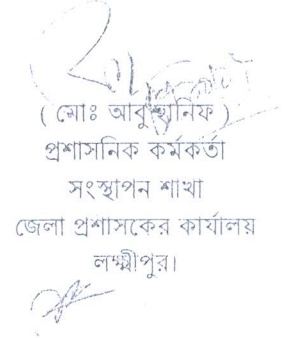 ( মোঃ আবু হানিফ )
প্রশাসনিক কর্মকর্তা
সংস্থাপন শাখা
জেলা প্রশাসকের কার্যালয়
লক্ষ্মীপুর।